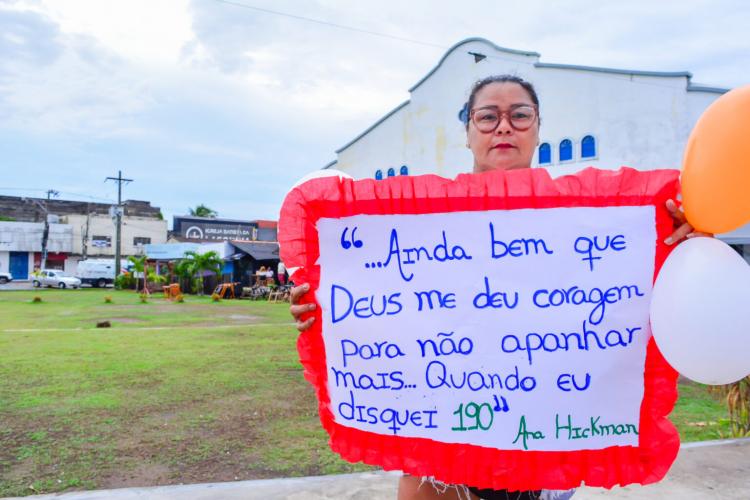 IGREJA BATISTA DA
LAGOINHA
“...Ainda bem que
Deus me deu coragem
para não apanhar
mais... Quando eu
disquei 190”
Ana Hickman